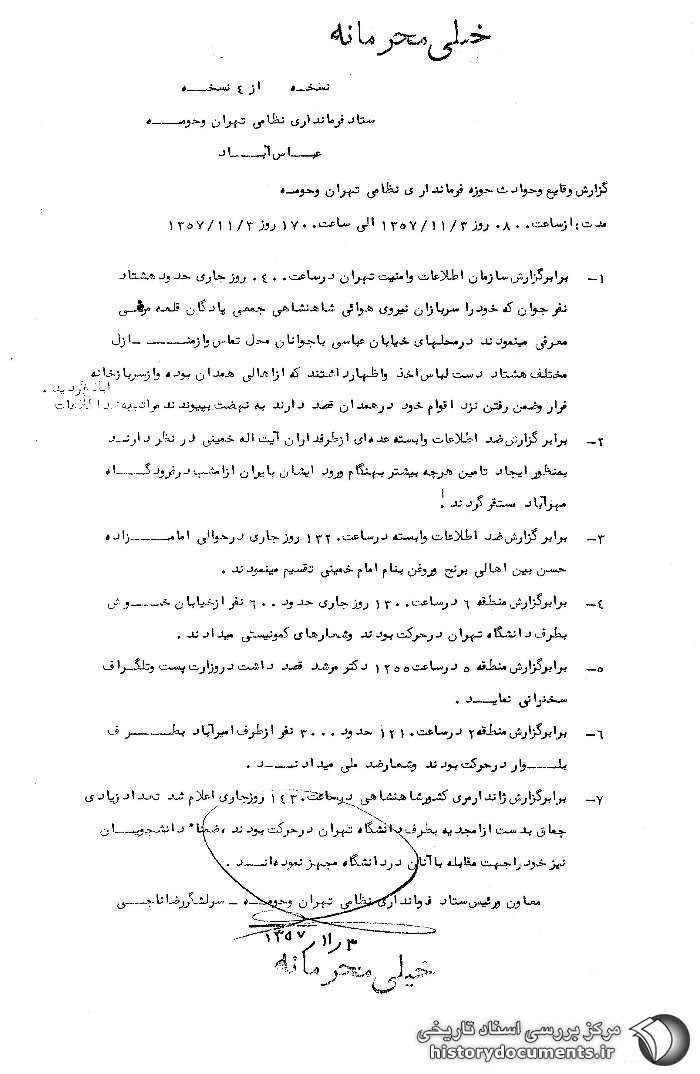 خیلی محرمانه
نسخه از ٤ نسخه
ستاد فرمانداری نظامی تهران وحومه
عباس آباد
گزارش وقایع وحوادث حوزه فرمانداری نظامی تهران وحومه
مدت : ازساعت ٠٨٠٠ روز ١٣٥٧/١١/٣ الی ساعت ١٧٠٠ روز ١٣٥٧/١١/٣
١- برابرگزارش سازمان اطلاعات وامنیت تهران درساعت ٠٤٠٠ روز جاری حدود هشتاد
نفر جوان که خود را سربازان نیروی هوائی شاهنشاهی جمعی پادگان قلعه مرغی
معرفی مینمودند درمحلهای خیابان عباسی باجوانان محل تماس وازمنازل
مختلف هشتاد دست لباس اخذ واظهارداشتند که ازاهالی همدان بوده وازسربازخانه
فرار وضمن رفتن نزد اقوام خود درهمدان قصد دارند به نهضت بپیوندند مراتب به ضد اطلاعات
ابلاغ گردید .
٢- برابر گزارش ضد اطلاعات وابسته عده‌ای ازطرفداران آیت اله خمینی در نظر دارند
بمنظور ایجاد تامین هرچه بیشتر بهنگام ورود ایشان بایران ازامشب درفرودگاه
مهرآباد مستقر گردند !
٣- برابر گزارش ضد اطلاعات وابسته درساعت ١٣٢٠ روز جاری درحوالی امامزاده
حسن بین اهالی برنج وروغن بنام امام خمینی تقسیم مینمودند .
٤- برابرگزارش منطقه ٦ درساعت ١٣٠٠ روز جاری حدود ٦٠٠ نفر ازخیابان خوش
بطرف دانشگاه تهران درحرکت بودند وشعارهای کمونیستی میدادند .
٥- برابرگزارش منطقه ٥ درساعت ١٢٥٥ دکتر مرشد قصد داشت دروزارت پست وتلگراف
سخنرانی نماید .
٦- برابرگزارش منطقه ٢ درساعت ١٢١٠ حدود ٣٠٠٠ نفر ازطرف امیرآباد بطرف
بلوار درحرکت بودند وشعارضد ملی میدادند .
٧- برابرگزارش ژاندارمری کشورشاهنشاهی درساعت ١٤٣٠ روزجاری اعلام شد تعداد زیادی
چماق بدست ازامجدیه بطرف دانشگاه تهران درحرکت بودند ، ضمنا" دانشجویان
نیز خود را جهت مقابله باآنان دردانشگاه مجهز نموده‌اند .
معاون ورئیس ستاد فرمانداری نظامی تهران وحومه - سرلشگررضا ناجی
١٣٥٧/١١/٣
خیلی محرمانه
مرکز بررسی اسناد تاریخی
historydocuments.ir